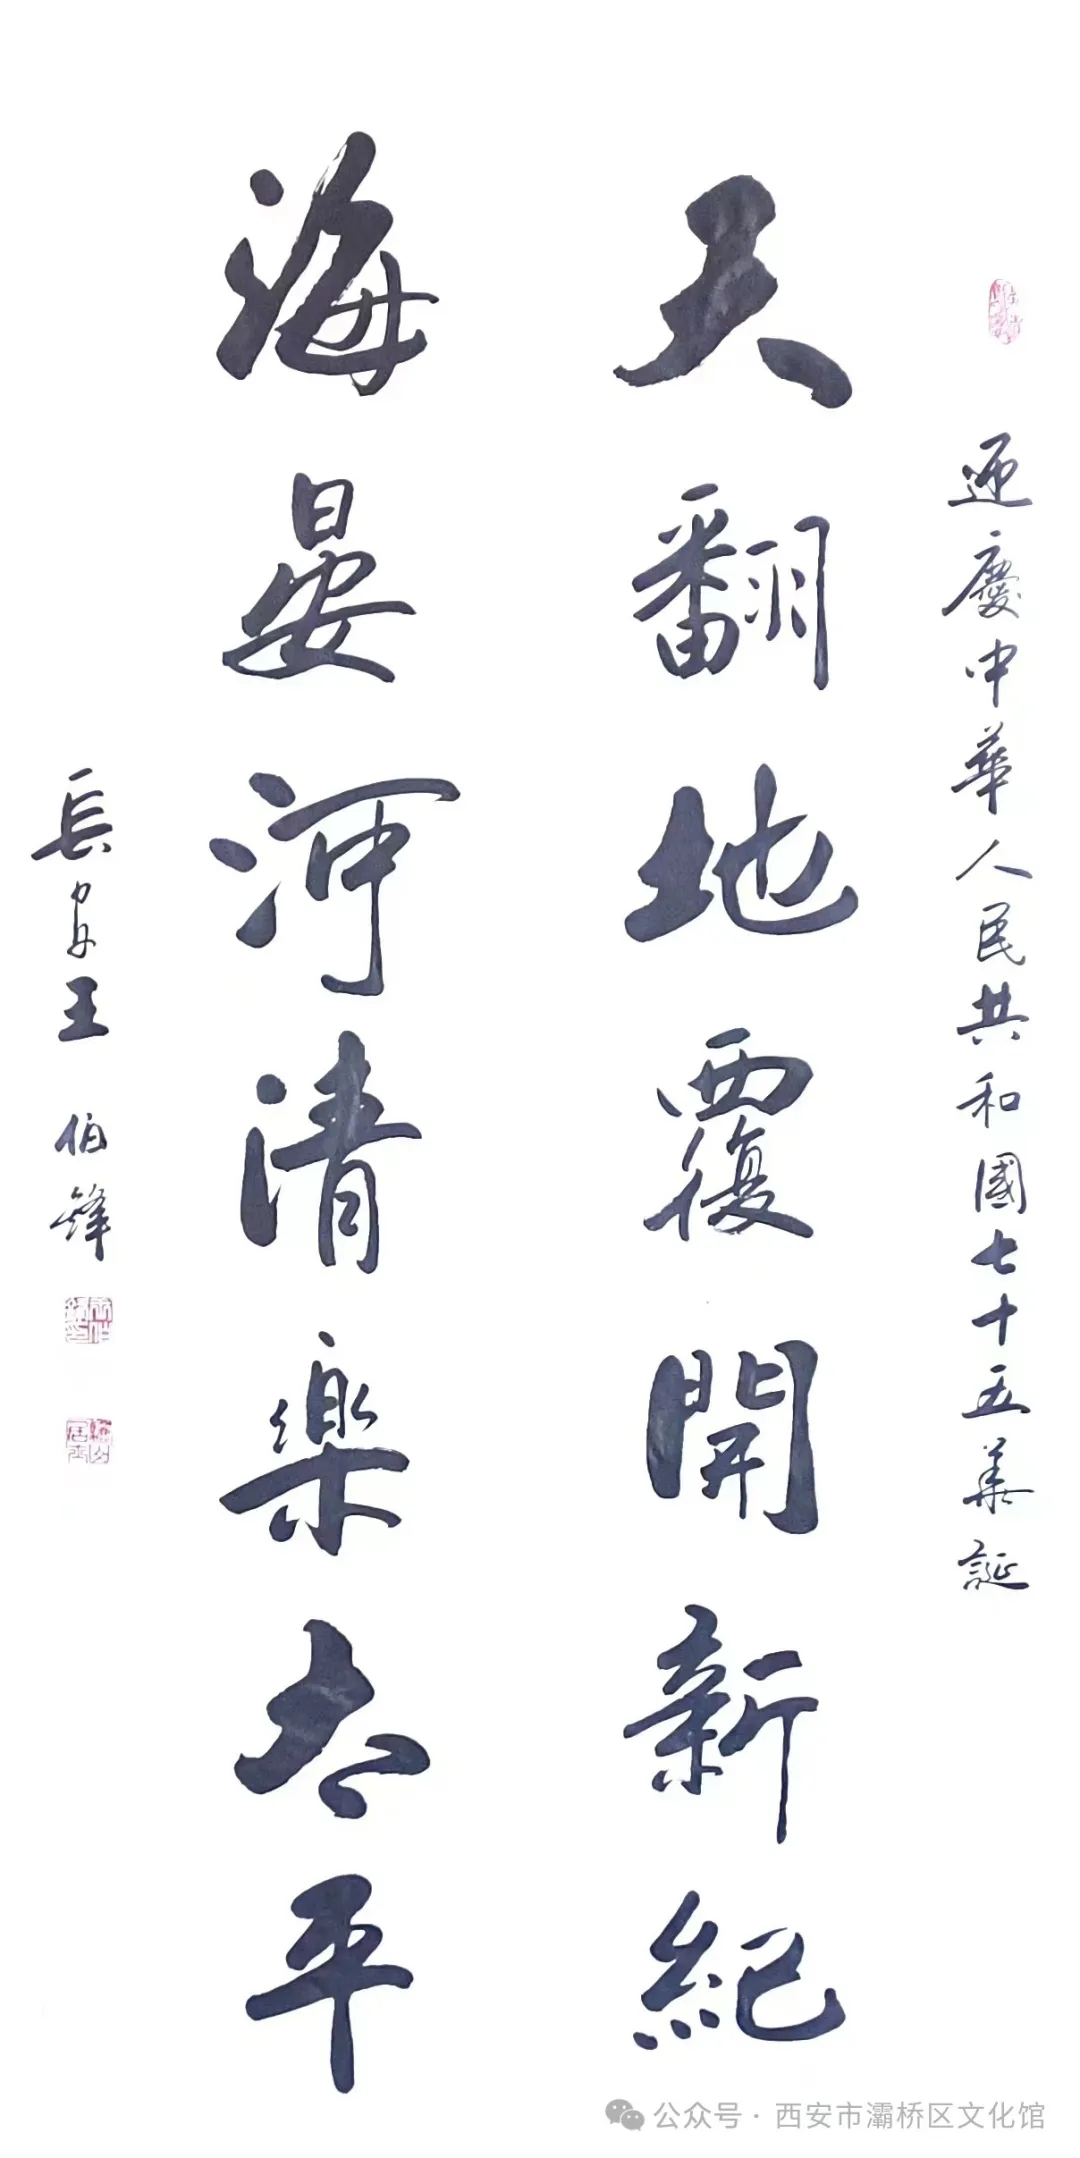 迎慶中華人民共和國七十五華誕
天翻地覆開新紀
海晏河清樂太平
長安王伯鋒
公众号·西安市灞桥区文化馆